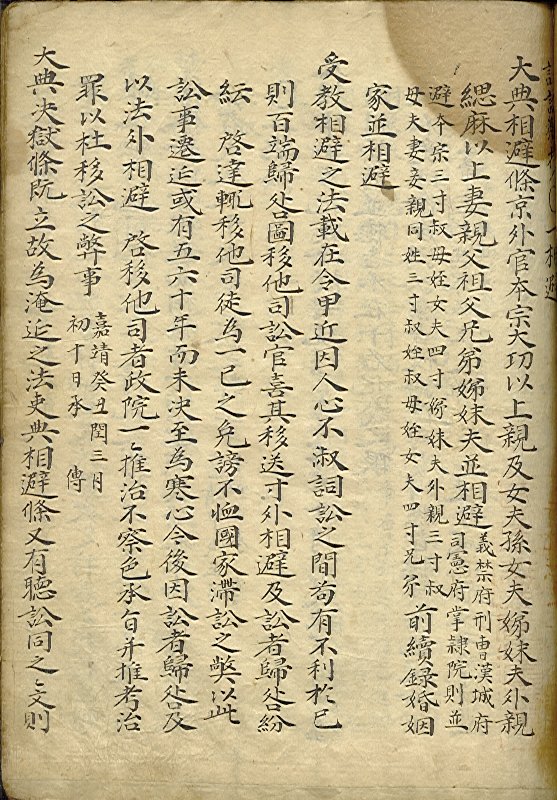 相避
大典相避條京外官本宗大功以上親及女夫孫女夫姊妹夫外親
緦麻以上妻親父祖父兄弟姊妹夫並相避
義禁府刑曹漢城府
司憲府掌隷院則並
避本宗三寸叔母姪女夫四寸姊妹夫外親三寸叔
母夫妻妾親同姓三寸叔姪叔母姪女夫四寸兄弟
前續錄婚姻
家並相避
受教相避之法載在令甲近因人心不淑詞訟之間苟有不利於己
則百端歸咎圖移他司訟官喜其移送寸外相避及訟者歸咎紛
紜 啓達輒移他司徒為一己之免謗不恤國家滯訟之弊以此
訟事遷延或有五六十年而未決至為寒心今後因訟者歸咎及
以法外相避 啓移他司者政院一〻推治不察色承旨并推考治
罪以杜移訟之弊事
嘉靖癸丑閏三月
初十日承 傳
大典决獄條既立故為淹延之法吏典相避條又有聽訟同之之文則